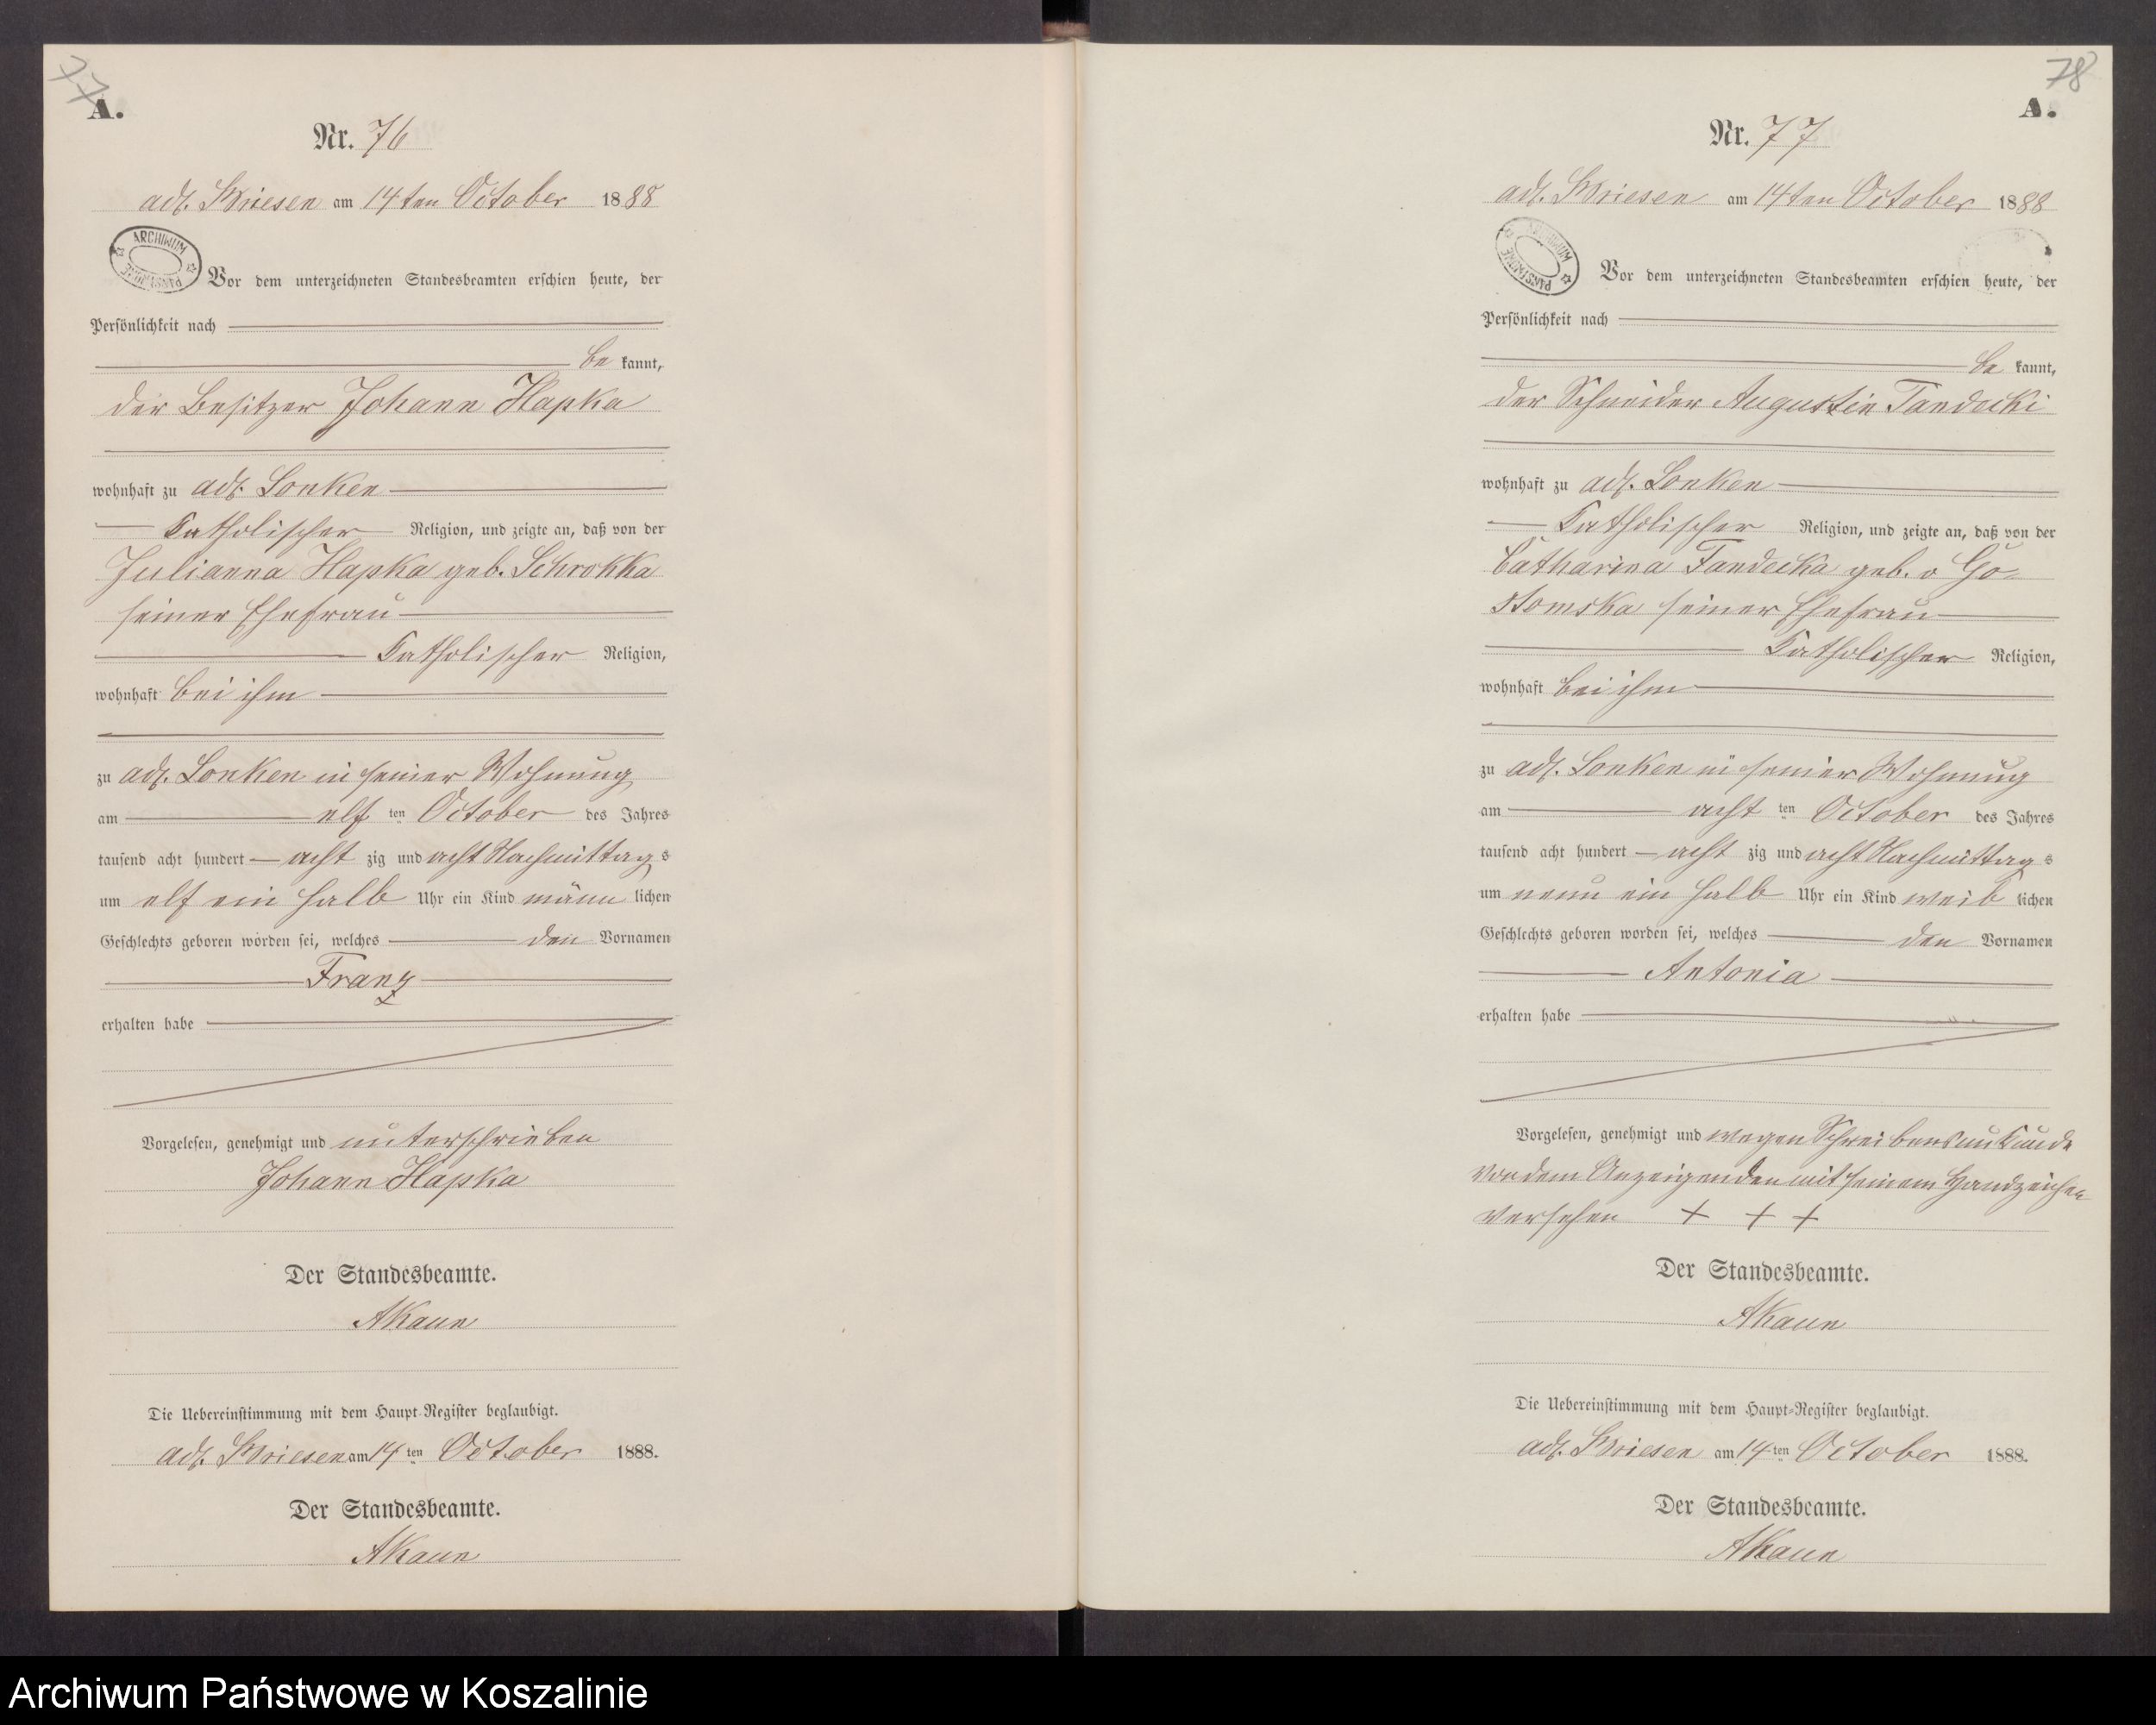 77
A.
Nr. 76
adl. Briesen am 14ten October 1888
ARCHIWUM PAŃSTWOWE
Vor dem unterzeichneten Standesbeamten erschien heute, der
Persönlichkeit nach
be kannt,
der Besitzer Johann Hapka
wohnhaft zu adl. Lonken
Katholischer Religion, und zeigte an, daß von der
Julianna Hapka geb. Schrokka
seiner Ehefrau
Katholischer Religion,
wohnhaft bei ihm
zu adl. Lonken in seiner Wohnung
am elf ten October des Jahres
tausend acht hundert acht zig und acht Nachmittag s
um elf ein halb Uhr ein Kind männ lichen
Geschlechts geboren worden sei, welches den Vornamen
Franz
erhalten habe
Vorgelesen, genehmigt und unterschrieben
Johann Hapka
Der Standesbeamte.
AKaun
Die Uebereinstimmung mit dem Haupt-Register beglaubigt.
adl. Briesen am 14 ten October 1888.
Der Standesbeamte.
AKaun
78
A.
Nr. 77
adl. Briesen am 14ten October 1888
ARCHIWUM PAŃSTWOWE
Vor dem unterzeichneten Standesbeamten erschien heute, der
Persönlichkeit nach
be kannt,
der Schneider Augustin Tandecki
wohnhaft zu adl. Lonken
Katholischer Religion, und zeigte an, daß von der
Catharina Tandecka geb. v Go-
stomska seiner Ehefrau
Katholischer Religion,
wohnhaft bei ihm
zu adl. Lonken in seiner Wohnung
am acht ten October des Jahres
tausend acht hundert acht zig und acht Nachmittag s
um neun ein halb Uhr ein Kind weib lichen
Geschlechts geboren worden sei, welches den Vornamen
Antonia
erhalten habe
Vorgelesen, genehmigt und wegen Schreibensunkunde
von dem Anzeigenden mit seinem Handzeichen
versehen + + +
Der Standesbeamte.
AKaun
Die Uebereinstimmung mit dem Haupt-Register beglaubigt.
adl. Briesen am 14 ten October 1888.
Der Standesbeamte.
AKaun
Archiwum Państwowe w Koszalinie